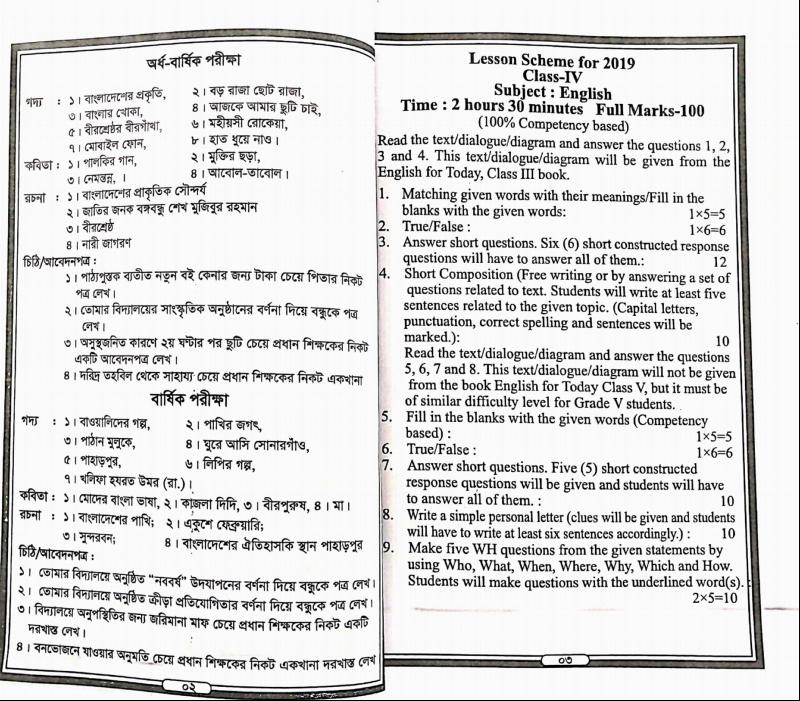 অর্ধ-বার্ষিক পরীক্ষা
গদ্য : ১। বাংলাদেশের প্রকৃতি, ২। বড় রাজা ছোট রাজা,
৩। বাংলার খোকা, ৪। আজকে আমার ছুটি চাই,
৫। বীরশ্রেষ্ঠর বীরগাঁথা, ৬। মহীয়সী রোকেয়া,
৭। মোবাইল ফোন, ৮। হাত ধুয়ে নাও।
কবিতা : ১। পালকির গান, ২। মুক্তির ছড়া,
৩। নেমন্তন্ন, । ৪। আবোল-তাবোল।
রচনা : ১। বাংলাদেশের প্রাকৃতিক সৌন্দর্য
২। জাতির জনক বঙ্গবন্ধু শেখ মুজিবুর রহমান
৩। বীরশ্রেষ্ঠ
৪। নারী জাগরণ
চিঠি/আবেদনপত্র :
১। পাঠ্যপুস্তক ব্যতীত নতুন বই কেনার জন্য টাকা চেয়ে পিতার নিকট
পত্র লেখ।
২। তোমার বিদ্যালয়ের সাংস্কৃতিক অনুষ্ঠানের বর্ণনা দিয়ে বন্ধুকে পত্র
লেখ।
৩। অসুস্থজনিত কারণে ২য় ঘণ্টার পর ছুটি চেয়ে প্রধান শিক্ষকের নিকট
একটি আবেদনপত্র লেখ।
৪। দরিদ্র তহবিল থেকে সাহায্য চেয়ে প্রধান শিক্ষকের নিকট একখানা
বার্ষিক পরীক্ষা
গদ্য : ১। বাওয়ালিদের গল্প, ২। পাখির জগৎ,
৩। পাঠান মুলুকে, ৪। ঘুরে আসি সোনারগাঁও,
৫। পাহাড়পুর, ৬। লিপির গল্প,
৭। খলিফা হযরত উমর (রা.)।
কবিতা : ১। মোদের বাংলা ভাষা, ২। কাজলা দিদি, ৩। বীরপুরুষ, ৪। মা।
রচনা : ১। বাংলাদেশের পাখি; ২। একুশে ফেব্রুয়ারি;
৩। সুন্দরবন; ৪। বাংলাদেশের ঐতিহাসকি স্থান পাহাড়পুর
চিঠি/আবেদনপত্র :
১। তোমার বিদ্যালয়ে অনুষ্ঠিত “নববর্ষ” উদযাপনের বর্ণনা দিয়ে বন্ধুকে পত্র লেখ।
২। তোমার বিদ্যালয়ে অনুষ্ঠিত ক্রীড়া প্রতিযোগিতার বর্ণনা দিয়ে বন্ধুকে পত্র লেখ।
৩। বিদ্যালয়ে অনুপস্থিতির জন্য জরিমানা মাফ চেয়ে প্রধান শিক্ষকের নিকট একটি
দরখাস্ত লেখ।
৪। বনভোজনে যাওয়ার অনুমতি চেয়ে প্রধান শিক্ষকের নিকট একখানা দরখাস্ত লেখ
০২
Lesson Scheme for 2019
Class-IV
Subject : English
Time : 2 hours 30 minutes Full Marks-100
(100% Competency based)
Read the text/dialogue/diagram and answer the questions 1, 2,
3 and 4. This text/dialogue/diagram will be given from the
English for Today, Class III book.
1. Matching given words with their meanings/Fill in the
blanks with the given words: 1×5=5
2. True/False : 1×6=6
3. Answer short questions. Six (6) short constructed response
questions will have to answer all of them.: 12
4. Short Composition (Free writing or by answering a set of
questions related to text. Students will write at least five
sentences related to the given topic. (Capital letters,
punctuation, correct spelling and sentences will be
marked.): 10
Read the text/dialogue/diagram and answer the questions
5, 6, 7 and 8. This text/dialogue/diagram will not be given
from the book English for Today Class V, but it must be
of similar difficulty level for Grade V students.
5. Fill in the blanks with the given words (Competency
based) : 1×5=5
6. True/False : 1×6=6
7. Answer short questions. Five (5) short constructed
response questions will be given and students will have
to answer all of them. : 10
8. Write a simple personal letter (clues will be given and students
will have to write at least six sentences accordingly.) : 10
9. Make five WH questions from the given statements by
using Who, What, When, Where, Why, Which and How.
Students will make questions with the underlined word(s).
2×5=10
০৩